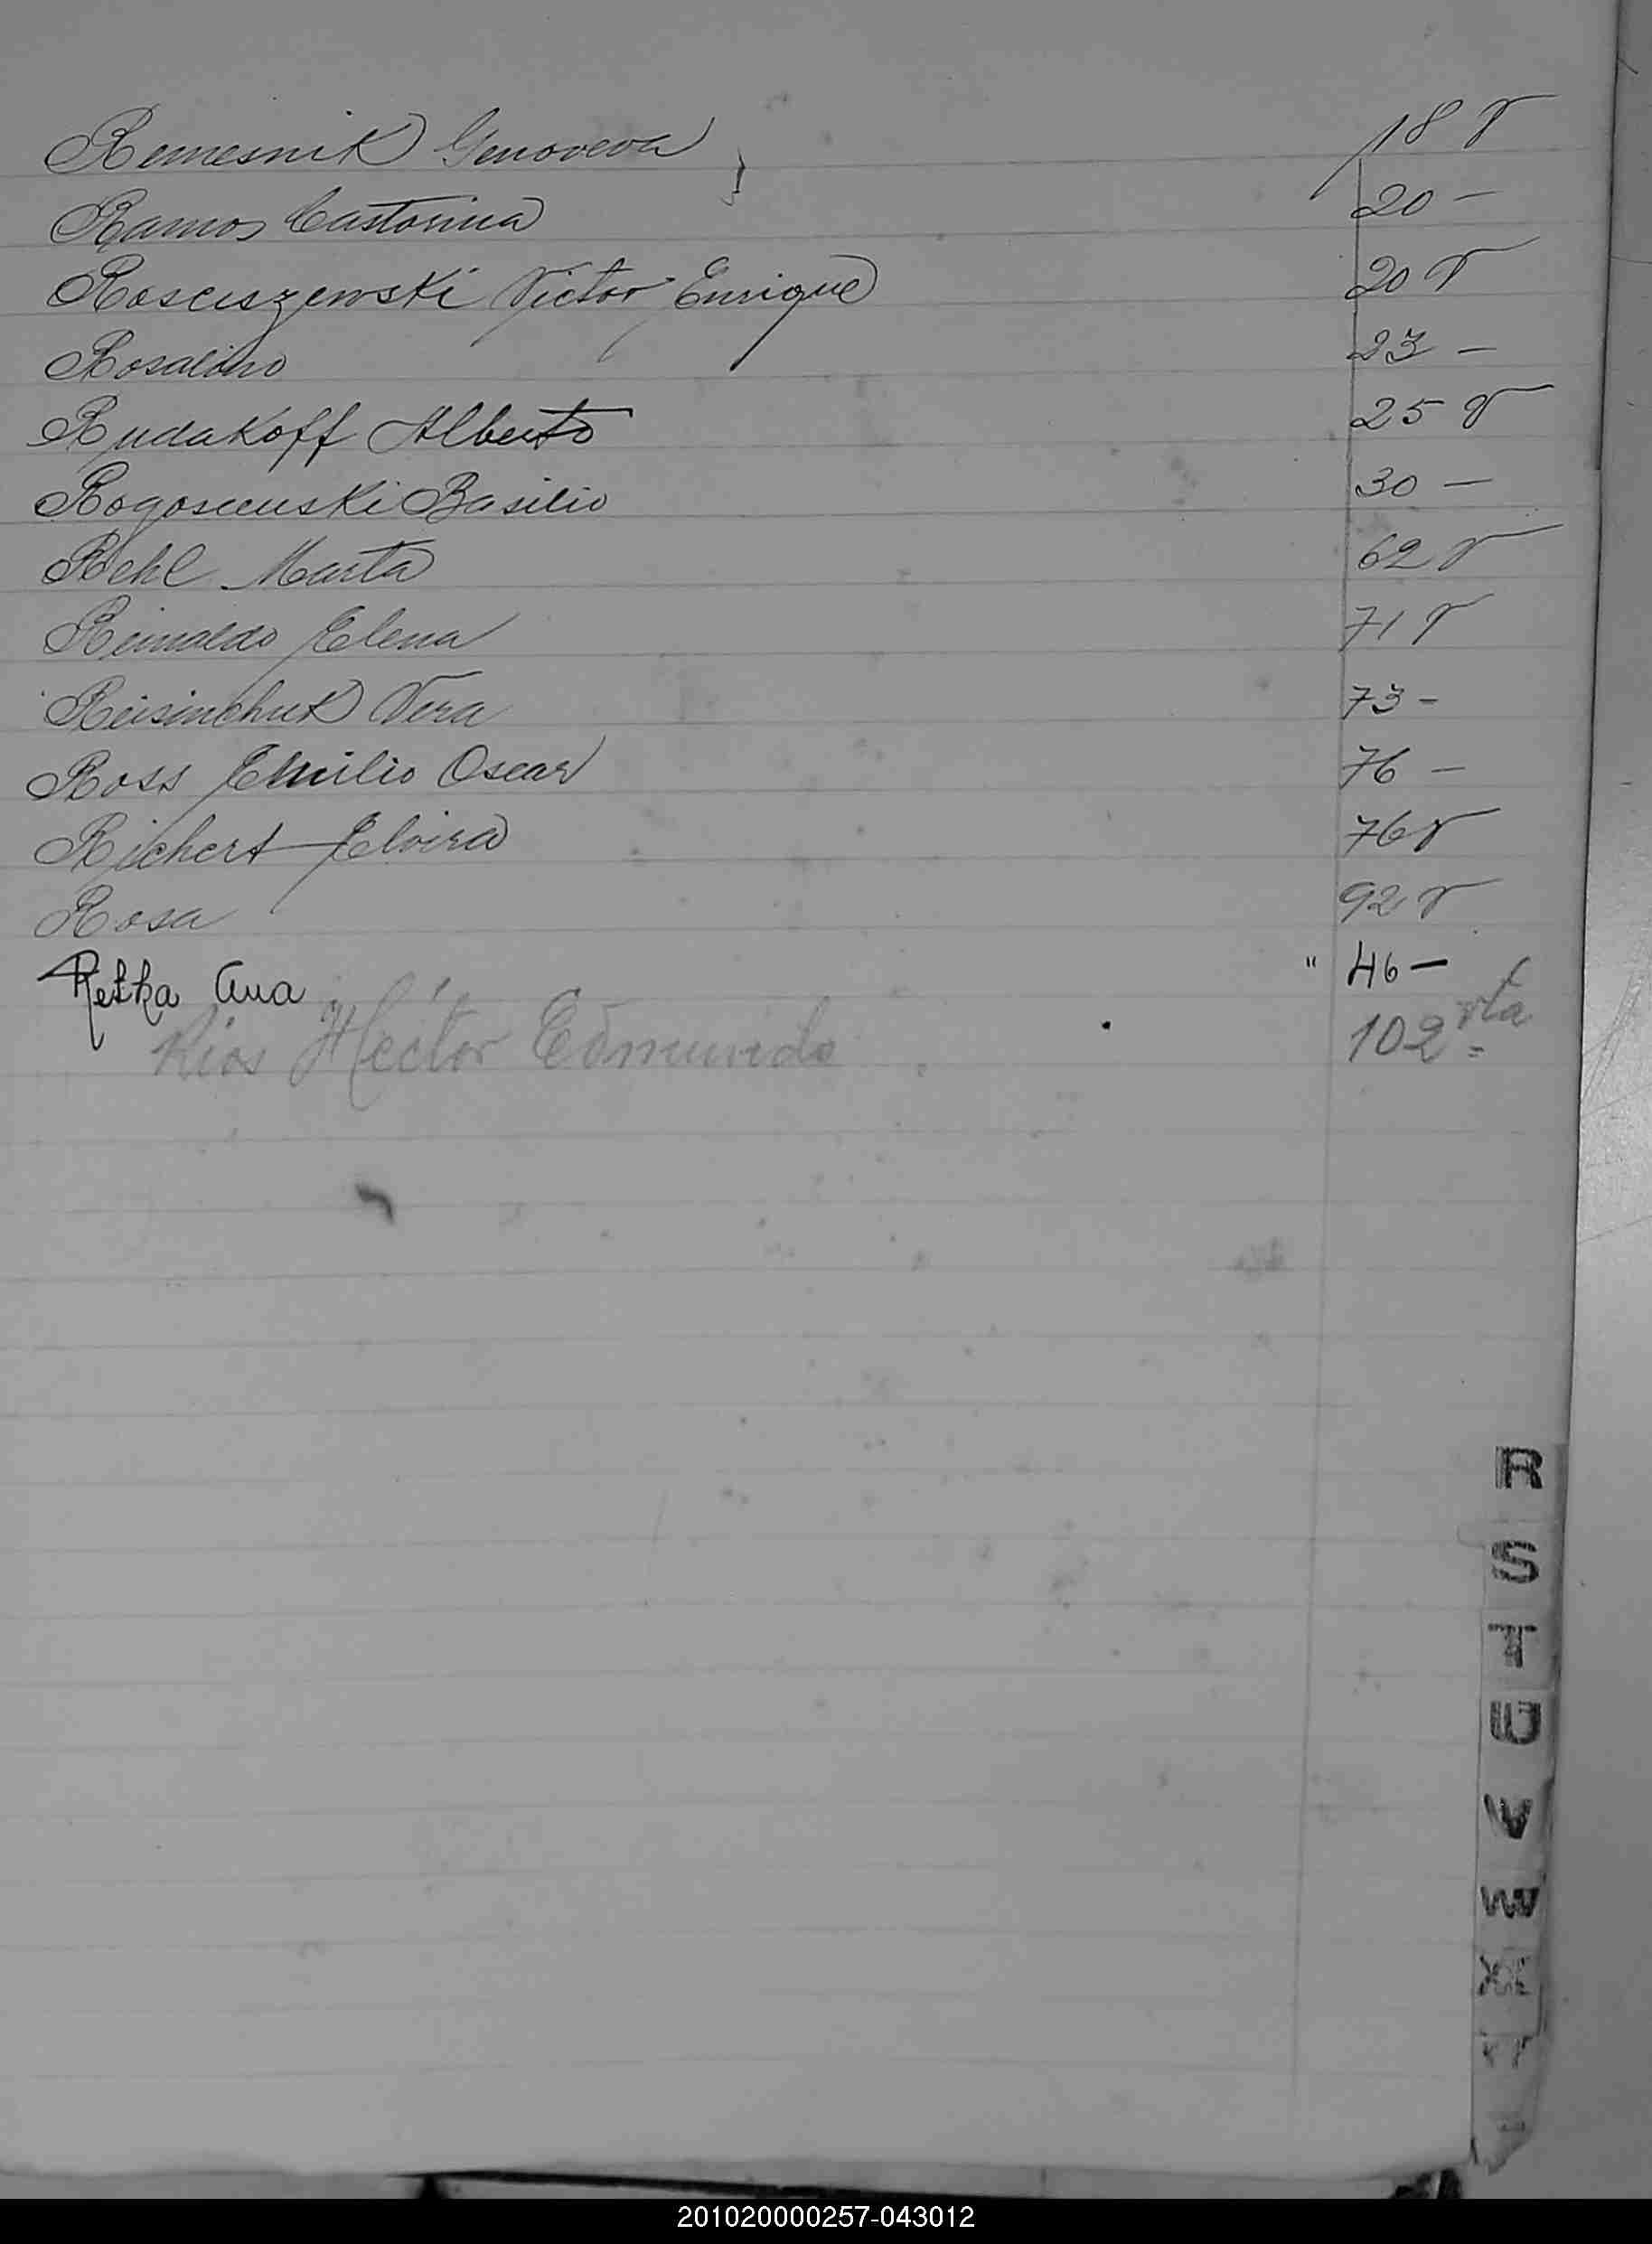 Remesnik Genoveva 18 V
Ramos Castorina 20 -
Rosciszewski Victor Enrique 20 V
Rosalino 23 -
Rudakoff Alberto 25 V
Basilio 30 -
Marta 62 V
Reinaldo Elena 71 V
Reisinchuk Vera 73 -
Ross Emilio Oscar 76 -
Richert Elvira 76 V
Rosa 92 V
Retka Ana " 46 -
Rios Héctor Edmundo 102 vta
R
S
T
U
V
W
X
201020000257-043012